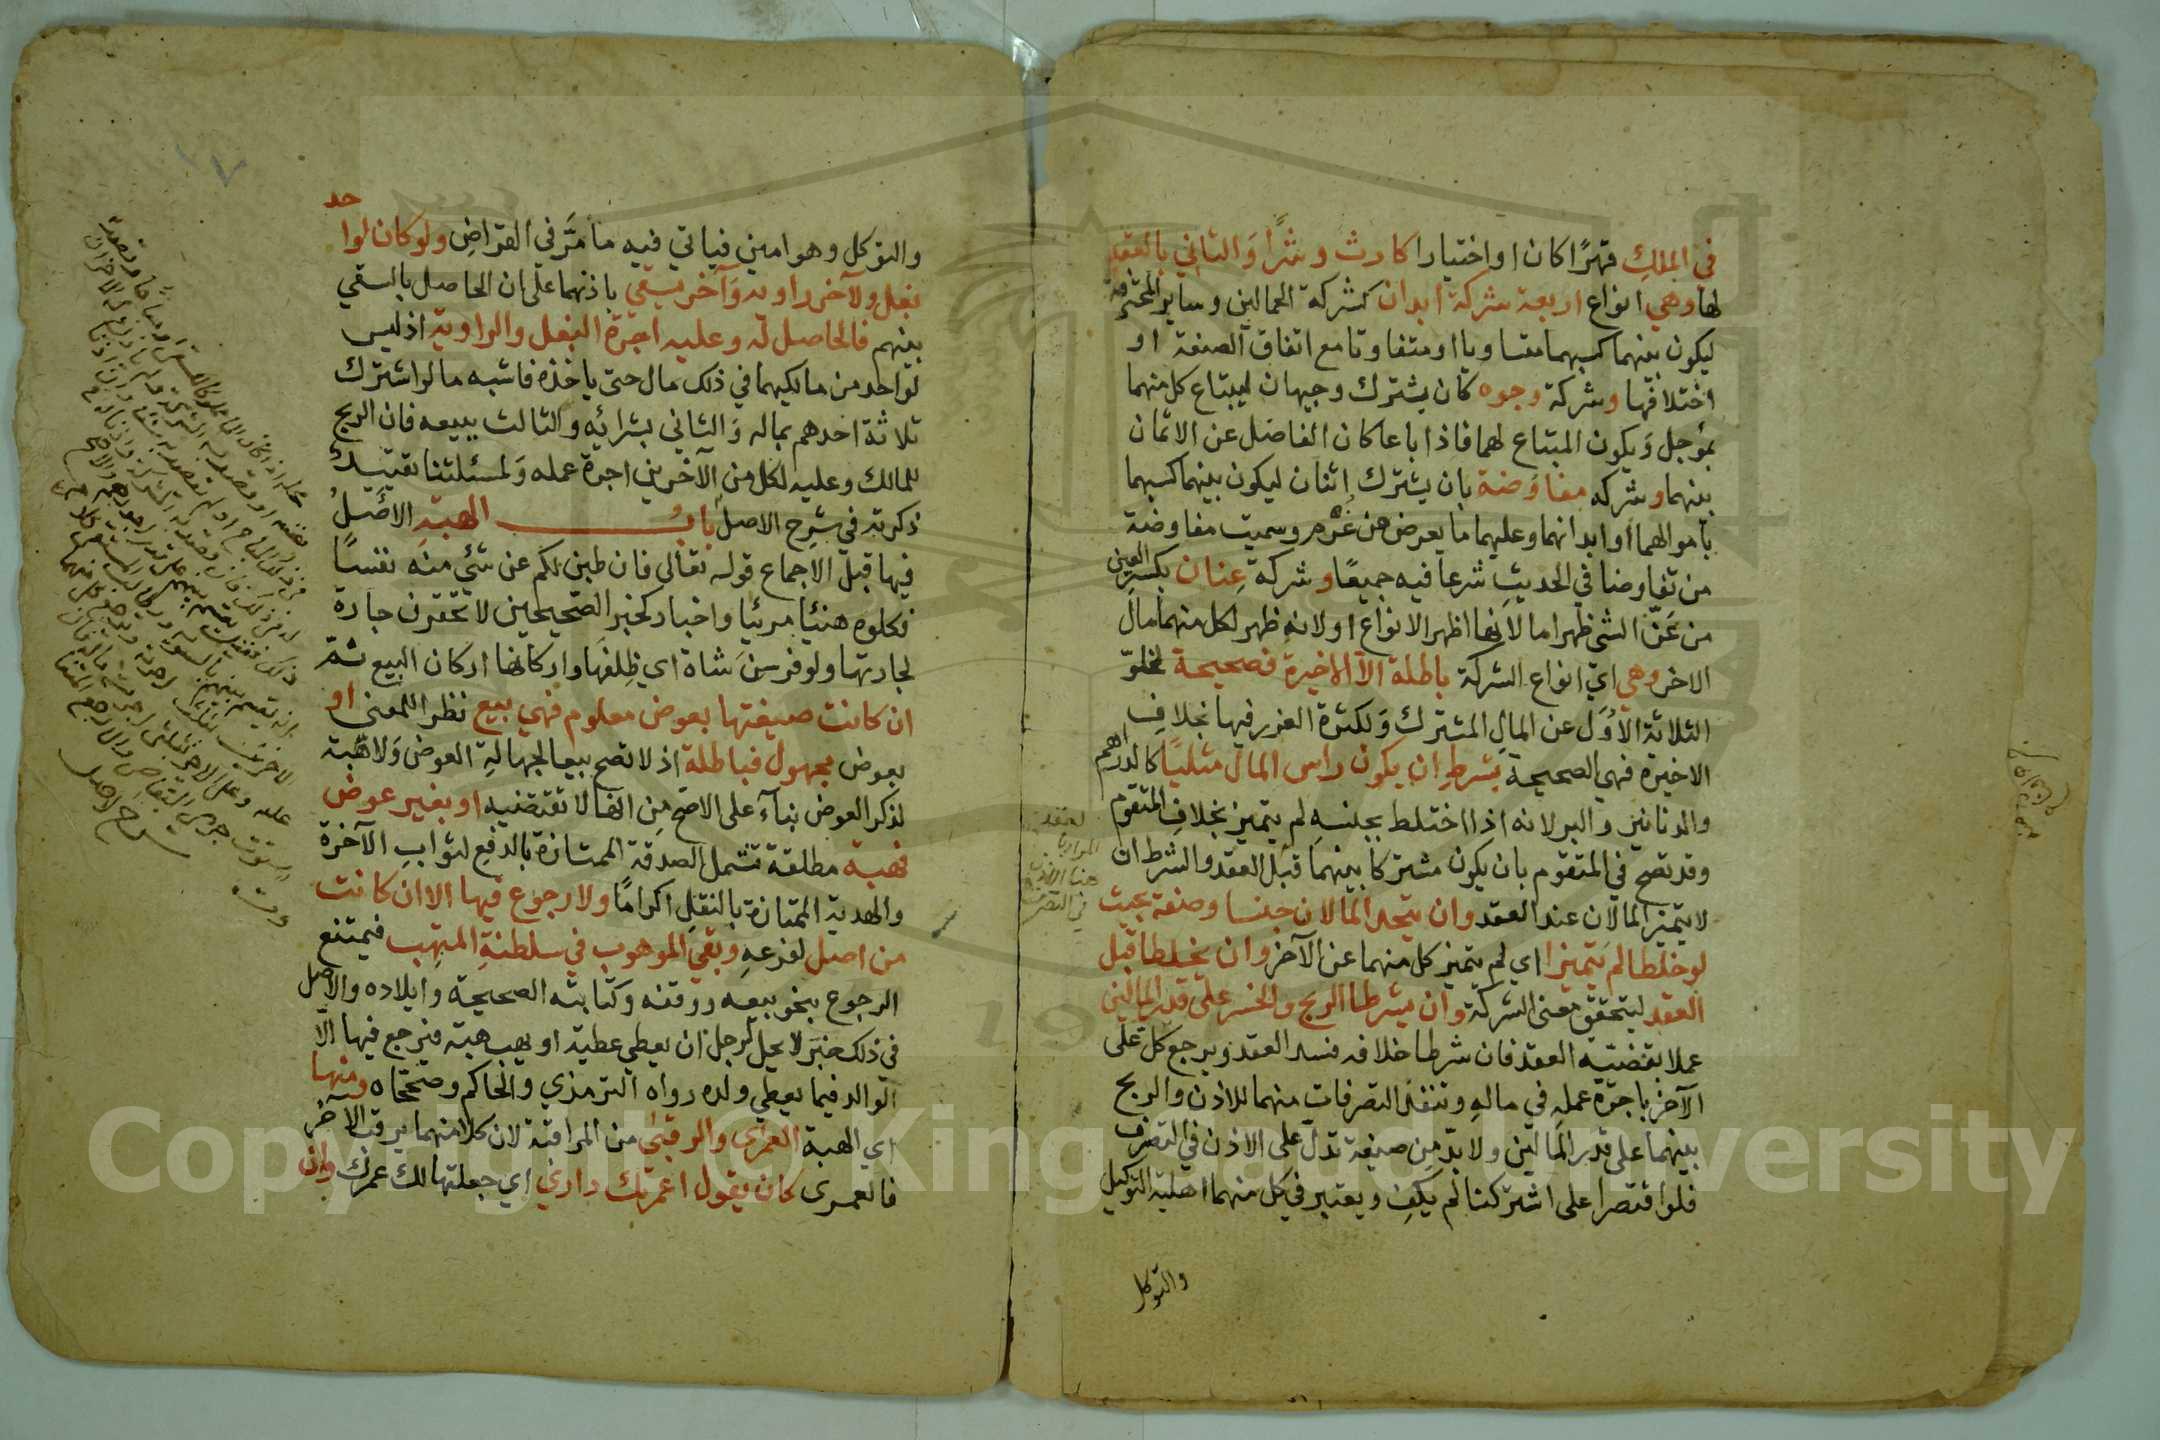 في الملك قهرًا كان او اختيارا كارث وشرًا والثاني بالعقد
لها وهي انواع اربعة شركة ابدان كشركة الحمالين وساير المحترفة
ليكون بينهما كسبهما متساويا او متفاوتا مع اتفاق الصنعة او
اختلافها وشركة وجوه كان يشترك وجيهان ليبتاع كل منهما
بمؤجل ويكون المبتاع لهما فاذا باعا كان الفاضل عن الاثمان
بينهما وشركه مفاوضة بان يشترك اثنان ليكون بينهما كسبهما
باموالهما او ابدانهما وعليهما ما يعرض من غرم وسميت مفاوضة
من تفاوضا في الحديث شرعا فيه جميعًا وشركة عنان بكسر العين
من عنّ الشئ ظهر اما لانها اظهر الانواع او لانه ظهر لكل منهما مال
الاخر وهي اي انواع الشركة باطلة الا الاخيرة فصحيحة لخلوّ
الثلاثة الاُوَل عن المال المشترك ولكثرة الغرر فيها بخلاف
الاخيرة فهي الصحيحة بشرط ان يكون راس المال مثليًا كالدراهم
والدنانير والبر لانه اذا اختلط بجنسه لم يتميز بخلاف المتقوم
وقد تصح في المتقوم بان يكون مشتركا بينهما قبل العقد والشرط ان
لا يتميز المالان عند العقد وان يتحد المالان جنسا وصفة بحيث
لو خلطا لم يتميزا اي لم يتميز كل منهما عن الآخر وان يخلطا قبل
العقد ليتحقق معنى الشركة وان يشرطا الربح والخسر على قدر المالين
عملا بقضية العقد فان شرطا خلافه فسد العقد ويرجع كل على
الآخر باجرة عمله في ماله وتنفذ التصرفات منهما للاذن والربح
بينهما على قدر المالين ولا بدّ من صيغة تدل على الاذن في التصرف
فلو اقتصرا على اشتركنا لم يكف ويعتبر في كل منهما اهلية التوكيل
والتوكل
والتوكل وهو امين فياتي فيه ما مرّ في القراض ولو كان لواحد
بغل ولآخر راويه وآخر يسقي باذنهما على ان الحاصل بالسقي
بينهم فالحاصل له وعليه اجرة البغل والراوية اذ ليس
لواحد من مالكيهما في ذلك مال حتى ياخذه فاشبه ما لو اشترك
ثلاثة احدهم بماله والثاني بشرائه والثالث ببيعه فان الربح
للمالك وعليه لكل من الآخرين اجرة عمله ولمسئلتنا تقييد
ذكرته في شرح الاصل باب الهبة الاصل
فيها قبل الاجماع قوله تعالى فان طبن لكم عن شئ منه نفسًا
فكلوه هنيئا مريئا واخبار كخبر الصحيحين لا تحقرن جارة
لجارتها ولو فرسن شاة اي ظلفها واركانها اركان البيع ثمّ
ان كانت صيغتها بعوض معلوم فهي بيع نظر اللمعنى او
بعوض مجهول فباطلة اذ لا تصح بيعا لجهالة العوض ولا هبة
لذكر العوض بنآء على الاصح من انها لا تقتضيه او بغير عوض
فهبة مطلقة تشمل الصدقة الممتازة بالدفع لثواب الآخرة
والهدية الممتازة بالنقل اكرامًا ولا رجوع فيها الا ان كانت
من اصل لفرعه وبقي الموهوب في سلطنة المتهب فيمتنع
الرجوع بنحو بيعه ووقفه وكتابته الصحيحة وايلاده والاصل
في ذلك خبر لا يحل لرجل ان يعطي عطية او يهب هبة فيرجع فيها الا
الوالد فيما يعطي ولده رواه الترمذي والحاكم وصححاه ومنها
اي الهبة العمرى والرقبى من المراقبة لان كلا منهما يرقب الآخر
فالعمرى كان يقول اعمرتك داري اي جعلتها لك عمرك وان
Copyright © King Saud University